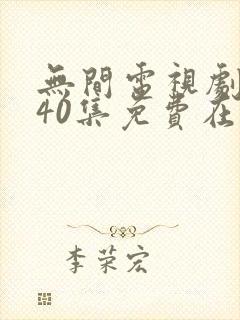 無間電視劇
40集免費在
李荣宏